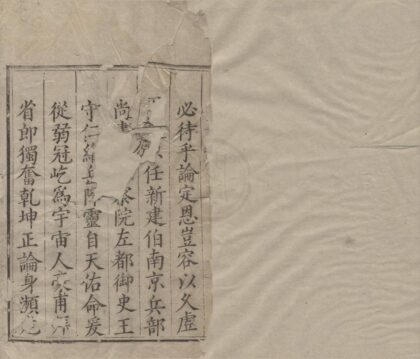 必待乎論定恩豈容以久虛
任新建伯南京兵部
尚書察院左都御史王
守仁維靈自天佑命爰
從弱冠屹爲宇宙人豪甫
省郎獨奮乾坤正論身瀕